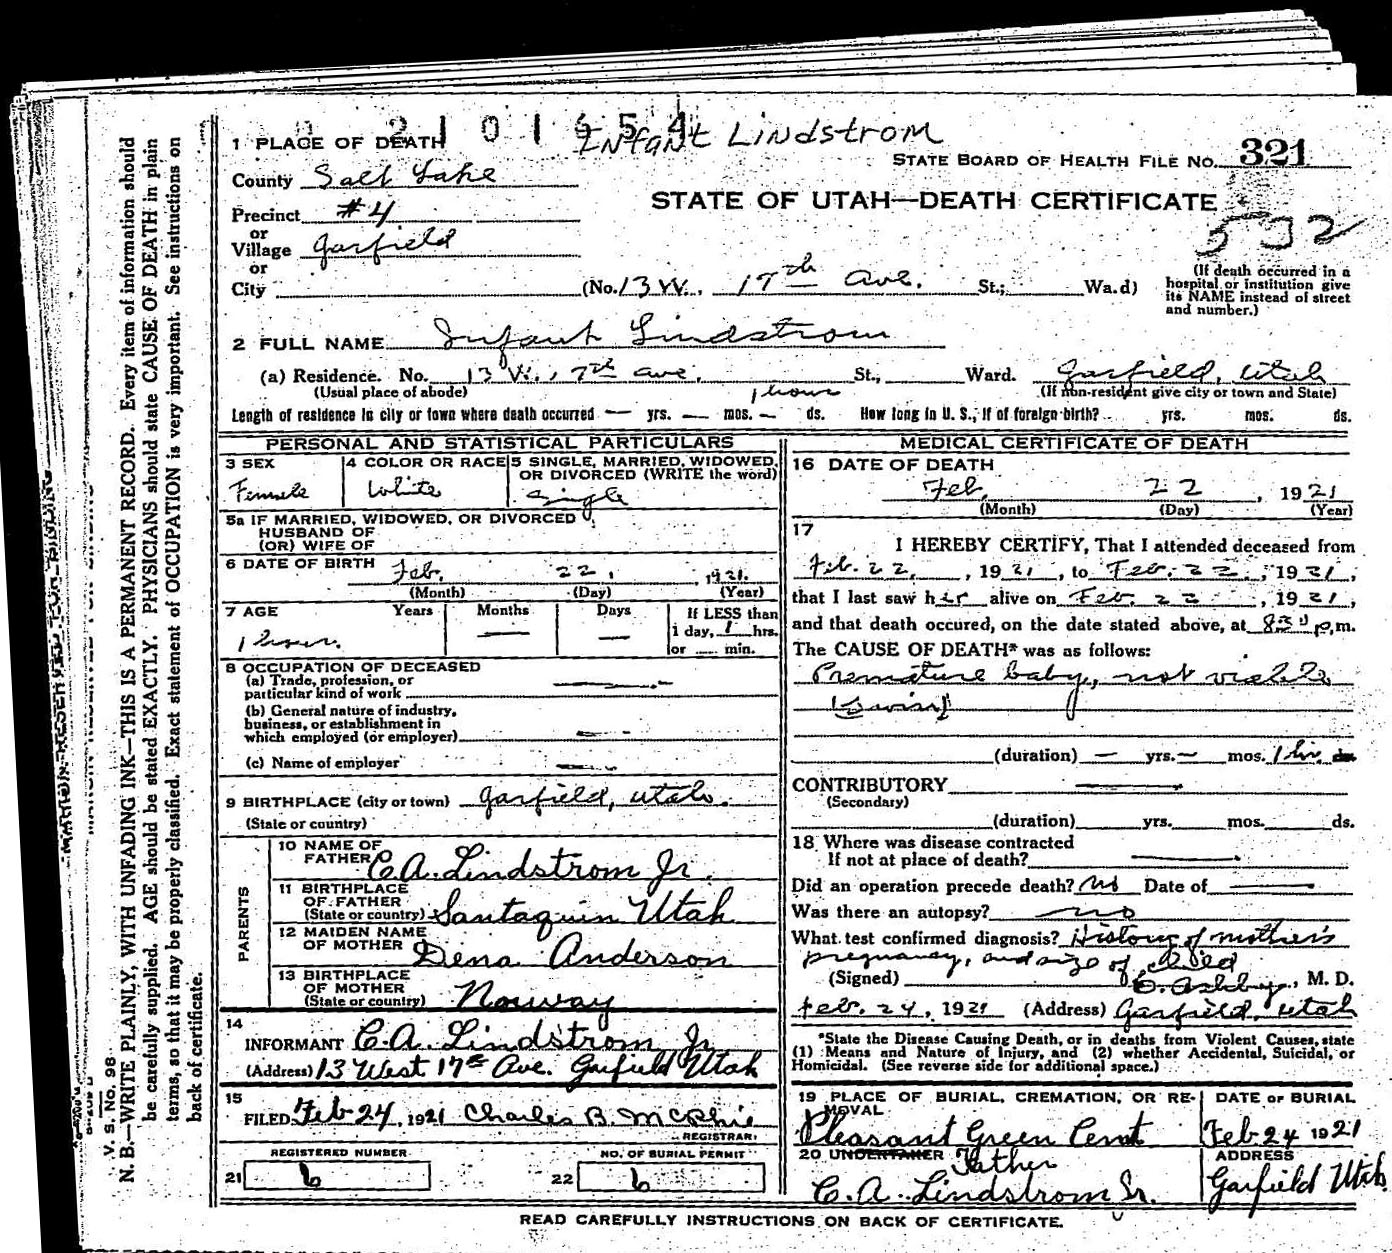 2101654
Infant Lindstrom
1 PLACE OF DEATH
STATE BOARD OF HEALTH FILE NO. 321
County Salt Lake
STATE OF UTAH—DEATH CERTIFICATE
532
Precinct #4
or
Village Garfield
or
City (No. 13 W. 17th Ave. St.; Ward)
(If death occurred in a hospital or institution give its NAME instead of street and number.)
2 FULL NAME Infant Lindstrom
(a) Residence. No. 13 W., 17th Ave. St., Ward. Garfield, Utah
(Usual place of abode) (If non-resident give city or town and State)
1 hour
Length of residence in city or town where death occurred — yrs. — mos. — ds. How long in U. S., if of foreign birth? yrs. mos. ds.
PERSONAL AND STATISTICAL PARTICULARS
3 SEX Female
4 COLOR OR RACE White
5 SINGLE, MARRIED, WIDOWED, OR DIVORCED (WRITE the word) Single
5a IF MARRIED, WIDOWED, OR DIVORCED
HUSBAND OF
(OR) WIFE OF
6 DATE OF BIRTH Feb. 22, 1921.
(Month) (Day) (Year)
7 AGE Years Months Days If LESS than
1 hour. — — 1 day, 1 hrs.
or ...... min.
8 OCCUPATION OF DECEASED
(a) Trade, profession, or
particular kind of work —
(b) General nature of industry,
business, or establishment in
which employed (or employer) —
(c) Name of employer —
9 BIRTHPLACE (city or town) Garfield, Utah.
(State or country)
PARENTS
10 NAME OF FATHER C.A. Lindstrom Jr.
11 BIRTHPLACE OF FATHER
(State or country) Santaquin Utah
12 MAIDEN NAME OF MOTHER Dena Anderson
13 BIRTHPLACE OF MOTHER
(State or country) Norway
14
INFORMANT C.A. Lindstrom Jr
(Address) 13 West 17th Ave. Garfield Utah
15
FILED Feb 24, 1921 Charles B. McPhie
REGISTRAR
REGISTERED NUMBER
21 6
NO. OF BURIAL PERMIT
22 6
MEDICAL CERTIFICATE OF DEATH
16 DATE OF DEATH
Feb. 22, 1921
(Month) (Day) (Year)
17
I HEREBY CERTIFY, That I attended deceased from
Feb. 22, 1921, to Feb. 22, 1921,
that I last saw her alive on Feb. 22, 1921,
and that death occured, on the date stated above, at 830 p.m.
The CAUSE OF DEATH* was as follows:
Premature baby, not viable
(twin)
(duration) — yrs. — mos. 1 hr. ds.
CONTRIBUTORY —
(Secondary)
(duration) yrs. mos. ds.
18 Where was disease contracted
If not at place of death? —
Did an operation precede death? No Date of —
Was there an autopsy? no
What test confirmed diagnosis? History of mother's
pregnancy, and size of child
(Signed) Ashby, M. D.
Feb. 24, 1921 (Address) Garfield, Utah
*State the Disease Causing Death, or in deaths from Violent Causes, state
(1) Means and Nature of Injury, and (2) whether Accidental, Suicidal, or
Homicidal. (See reverse side for additional space.)
19 PLACE OF BURIAL, CREMATION, OR REMOVAL
Pleasant Green Cemt
DATE OF BURIAL
Feb 24 1921
20 UNDERTAKER Father
C. A. Lindstrom Sr.
ADDRESS
Garfield Utah
READ CAREFULLY INSTRUCTIONS ON BACK OF CERTIFICATE.
V. S. No. 98
N. B.—WRITE PLAINLY, WITH UNFADING INK—THIS IS A PERMANENT RECORD. Every item of information should
be carefully supplied. AGE should be stated EXACTLY. PHYSICIANS should state CAUSE OF DEATH in plain
terms, so that it may be properly classified. Exact statement of OCCUPATION is very important. See instructions on
back of certificate.